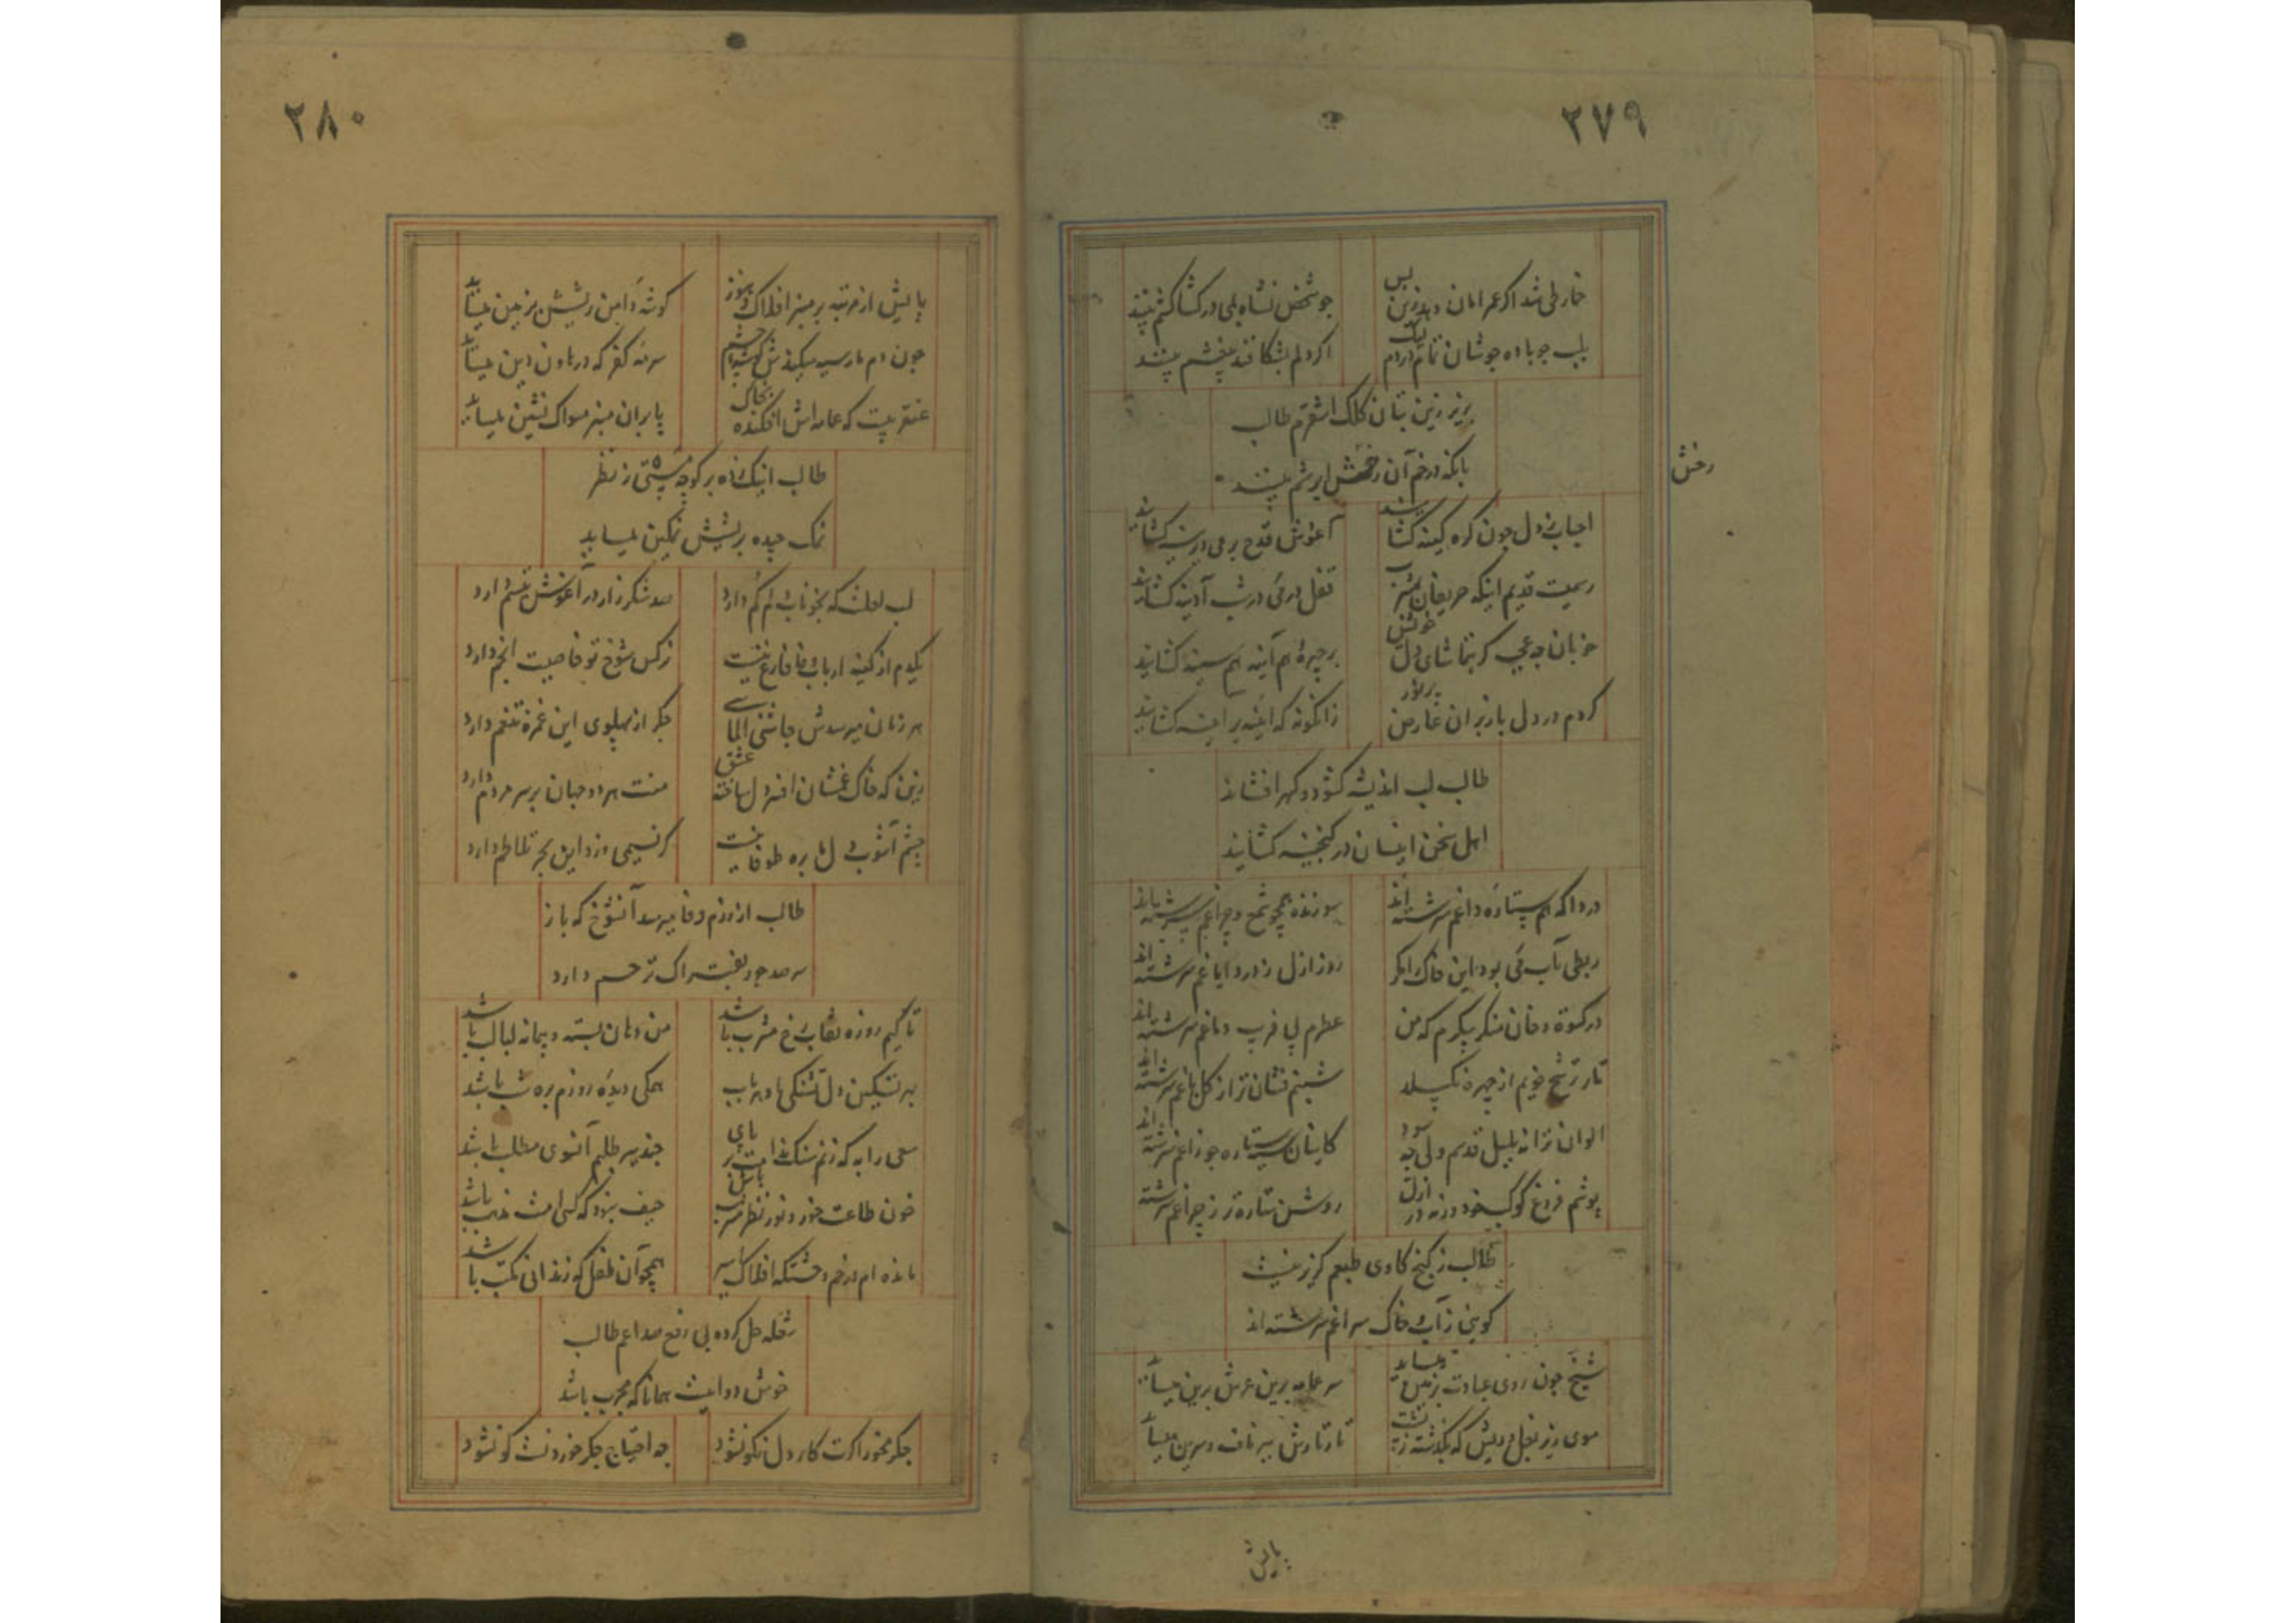 ۲۷۹
خار طی شد اگر عمر امان و بدزین بس
چو شخص نشاه بمی در کشاکشم بینند
بلب چو باده جوشان تمام
اگر دلم بشکافند بینند
بریز زین بنان کلک اشقرم طالب
بانکه در خم آن رخش ابرشم بینند
رخش
احباب ز دل چون گره کینه گشایند
آغوش قدح بر می دیرینه گشایند
رسمیست قدیم اینکه حریفان
قفل در می در شب آدینه گشایند
خوبان چه عجب گر بتماشای دل خویش
بر چهره هم آینه سینه گشایند
کردم در دل باز بر آن عارض پر نور
زانگونه که آینه بر آینه گشایند
طالب لب اندیشه گشود و گهر افشاند
اهل سخن اینسان در گنجینه گشایند
دردا که هم ستاره داغم سرشته‌اند
سوزنده همچو شمع و چراغم سرشته‌اند
ربطی بآب می بود این خاک را مگر
روز ازل ز درد ایاغم سرشته‌اند
در کسوة دخان منگر پیکرم که من
عطرم پی فریب دماغم سرشته‌اند
تار ترشح خویم از چهره نگسلد
شبنم فشان‌تر از گل باغم سرشته‌اند
الوان ترانه بلبل قدسم ولی چه سود
کاینان سیه ستاره چو زاغم سرشته‌اند
پوشم فروغ کوکب خود ورنه در ازل
روشن ستاره‌تر ز چراغم سرشته
طالب ز کنج کاوی طبعم گریز نیست
گویی ز آب و خاک سراغم سرشته‌اند
شیخ چون روی عبادت بزمین میساید
سر عمامه برین عرش برین میساید
موی زیر بغل و ریش که بگذشته ز پشت
تار تارش بسر ناف و سرین میساید
پالیش
۲۸۰
پالیش از مرتبه بر منبر افلاک و هنوز
گوشه دامن ریشش بزمین میساید
چون دم مار سیه میکندش
سرمه کفر که در هاون دین میساید
عنقریبست که عمامه‌اش افکنده بخاک
پا بران منبر مسواک نشین میساید
طالب اینک زده بر کوچه پستی ز نظر
نمک چیده بریشش نمکین میساید
لب لعلت که بخوناب دلم گم دارد
صد شکرزار در آغوش تبسم دارد
یکدم از کینه ارباب وفا فارغ نیست
نرگس شوخ تو خاصیت انجم دارد
هر زمان میرسدش چاشنی الماسی
جگر از پهلوی این غمزه تنعم دارد
زین که خاک غمشان افسر دل ساخته عشق
منت هر دو جهان بر سر مردم دارد
چشم آشوب دل ما بره طوفانیست
گر نسیمی وزد این بحر تلاطم دارد
طالب از رزم وفا میرسد آنشوخ که باز
سر صد جور بفتراک ترحم دارد
تا کیم روزه نقاب رخ مشرب باشد
من دهان بسته و پیمانه لبالب باشد
بهر تسکین دل تشنگی ما و رباب
همگی دیده روزم بره شب باشد
سعی را به که زنم سنگ ندامت بر پای
چند سر طلبم آنسوی مطلب باشد
خون طاعت خور و نور نظر مشرب باش
حیف نبود که کسی امت مذهب باشد
مانده‌ام در خم وحشتکه افلاک اسیر
همچو آن طفل که زندانی مکتب باشد
شعله حل کرده پی رفع صداعم طالب
خوش دوائیست همانا که مجرب باشد
جگر مخور اگرت کار دل نکو نشود
چه احتیاج جگر خوردنست گو نشود